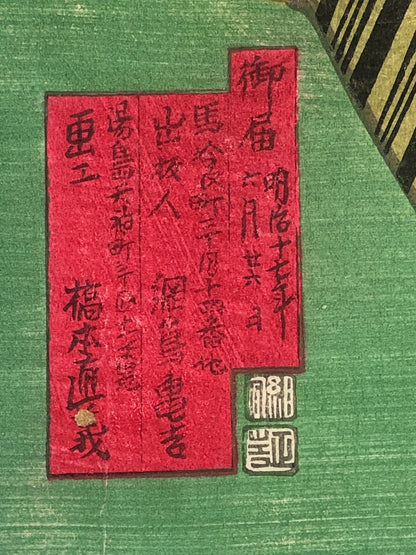 御届 明治十七年
六月廿六日
馬喰町二丁目十四番地
出板人 綱島亀吉
湯島天神町三丁目
画工 橋本直義